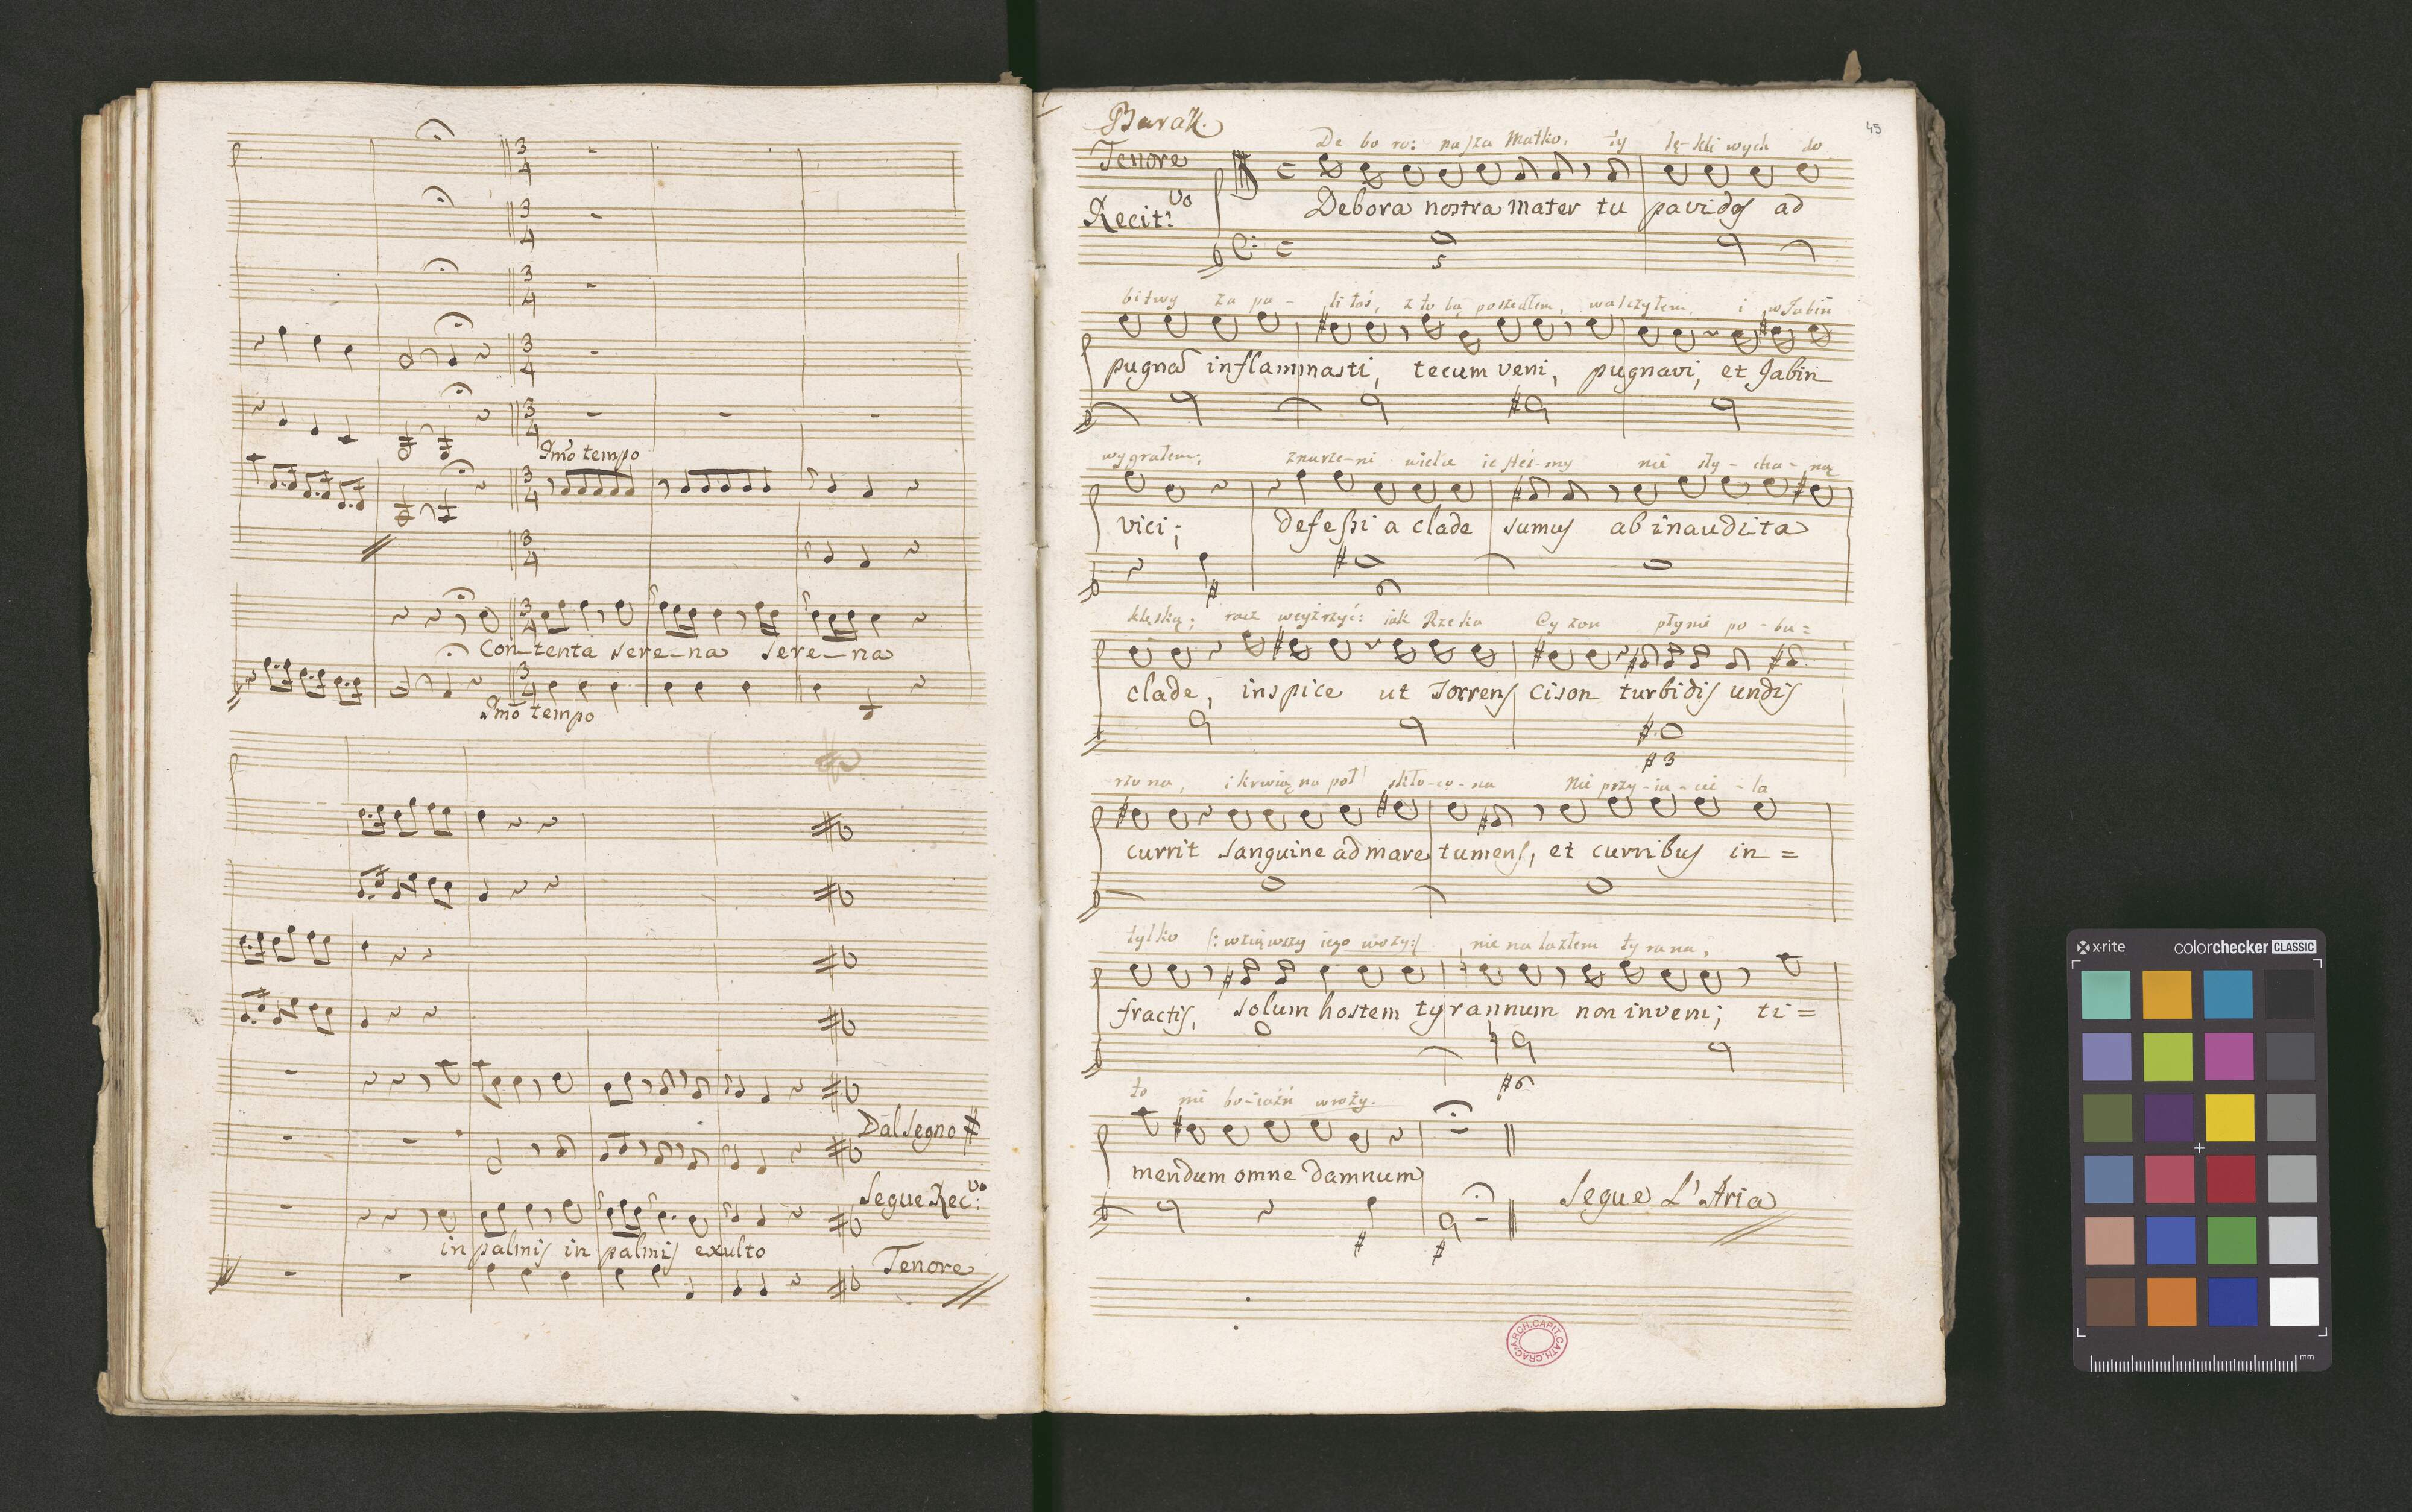 Imo tempo
Contenta sere-na sere-na
Imo tempo
Dal Segno
Segue Rec:vo
in palmis in palmis exulto
Tenore
Barak.
45
De bo ro: nasza Matko, Ty lę-kli wych do
Tenore
Recit:vo
Debora nostra mater tu pavidos ad
bitwy za pa - li łaś, z to bą poszedłem, walczyłem, i w Jabin
pugnã inflammasti, tecum veni, pugnavi, et Jabin
wygrałem; znurze-ni nie sły-cha-ną
vici; defessi a clade sumus ab inaudita
klęską; racz weyźrzyć: iak Rzeka Cy zon płynie po-bu=
clade, inspice ut Torrens cison turbidis undis
rzona, i krwią na poł skło-co-na Nie przy-ia-cie-la
currit sanguine ad mare tumens, et curribus in=
tylko /: wziąwszy iego wozy:/ nie nalazłem tyrana,
fractis, solum hostem tyrannum non inveni; ti=
to mi bo-iaźń wroży.
mendum omne damnum
Segue L'Aria
ARCH.CAPIT.CATH.CRAC
x-rite colorchecker CLASSIC
mm